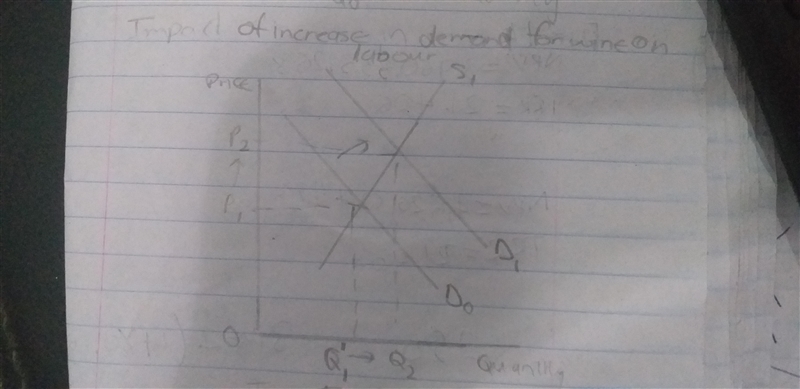 Impact of increase in demand for wine on
labour
Price
S₁
P₂
↑
P₁
D₁
D₀
0
Q₁ → Q₂
Quantity